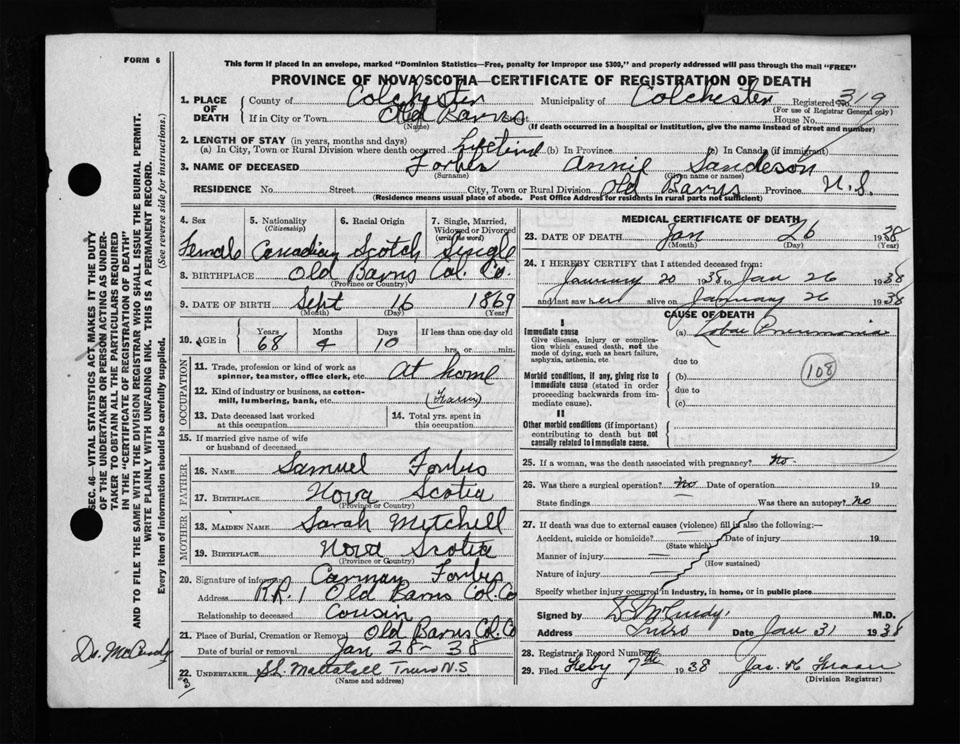 FORM 6
This form if placed in an envelope, marked "Dominion Statistics—Free, penalty for improper use $300," and properly addressed will pass through the mail "FREE"
PROVINCE OF NOVA SCOTIA—CERTIFICATE OF REGISTRATION OF DEATH
1. PLACE OF DEATH County of Colchester Municipality of Colchester Registered No. 319
(For use of Registrar General only)
If in City or Town Old Barns House No.
(Name) (If death occurred in a hospital or institution, give the name instead of street and number)
2. LENGTH OF STAY (in years, months and days)
(a) In City, Town or Rural Division where death occurred Lifetime (b) In Province (c) In Canada (if immigrant)
3. NAME OF DECEASED Forbes Annie Sanderson
(Surname) (Given name or names)
RESIDENCE No. Street City, Town or Rural Division Old Barns Province N.S.
(Residence means usual place of abode. Post Office Address for residents in rural parts not sufficient)
4. Sex 5. Nationality (Citizenship) 6. Racial Origin 7. Single, Married, Widowed or Divorced (write the word)
Female Canadian Scotch Single
8. BIRTHPLACE Old Barns Col. Co.
(Province or Country)
9. DATE OF BIRTH Sept 16 1869
(Month) (Day) (Year)
10. AGE in Years Months Days If less than one day old
68 4 10 hrs. or min.
OCCUPATION
11. Trade, profession or kind of work as spinner, teamster, office clerk, etc. At home
12. Kind of industry or business, as cotton-mill, lumbering, bank, etc. (Farm)
13. Date deceased last worked at this occupation 14. Total yrs. spent in this occupation
15. If married give name of wife or husband of deceased
FATHER
16. NAME Samuel Forbes
17. BIRTHPLACE Nova Scotia
(Province or Country)
MOTHER
18. MAIDEN NAME Sarah Mitchell
19. BIRTHPLACE Nova Scotia
(Province or Country)
20. Signature of informant Carman Forbes
Address R.R.1 Old Barns Col. Co
Relationship to deceased Cousin
21. Place of Burial, Cremation or Removal Old Barns Col. Co
Date of burial or removal Jan 28-38
22. UNDERTAKER Truro N.S.
(Name and address)
MEDICAL CERTIFICATE OF DEATH
23. DATE OF DEATH Jan 26 1938
(Month) (Day) (Year)
24. I HEREBY CERTIFY that I attended deceased from:
January 20 1938 to Jan 26 1938
and last saw her alive on January 26 1938
CAUSE OF DEATH
I
Immediate cause (a) Lobar Pneumonia
Give disease, injury or complication which caused death, not the mode of dying, such as heart failure, asphyxia, asthenia, etc.
due to
108
Morbid conditions, if any, giving rise to immediate cause (stated in order proceeding backwards from immediate cause). (b)
due to
(c)
II
Other morbid conditions (if important) contributing to death but not causally related to immediate cause.
25. If a woman, was the death associated with pregnancy? no.
26. Was there a surgical operation? No Date of operation 19
State findings Was there an autopsy? No
27. If death was due to external causes (violence) fill in also the following:—
Accident, suicide or homicide? Date of injury 19
(State which)
Manner of injury
(How sustained)
Nature of injury
Specify whether injury occurred in industry, in home, or in public place
Signed by McCurdy. M.D.
Address Truro Date Jan 31 1938
28. Registrar's Record Number
29. Filed Feby 7th 1938 Jas.
(Division Registrar)
SEC. 46—VITAL STATISTICS ACT, MAKES IT THE DUTY
OF THE UNDERTAKER OR PERSON ACTING AS UNDER-
TAKER TO OBTAIN ALL THE PARTICULARS REQUIRED
IN THE "CERTIFICATE OF REGISTRATION OF DEATH"
AND TO FILE THE SAME WITH THE DIVISION REGISTRAR WHO SHALL ISSUE THE BURIAL PERMIT.
WRITE PLAINLY WITH UNFADING INK. THIS IS A PERMANENT RECORD.
Every item of information should be carefully supplied. (See reverse side for instructions.)
Dr. McCurdy